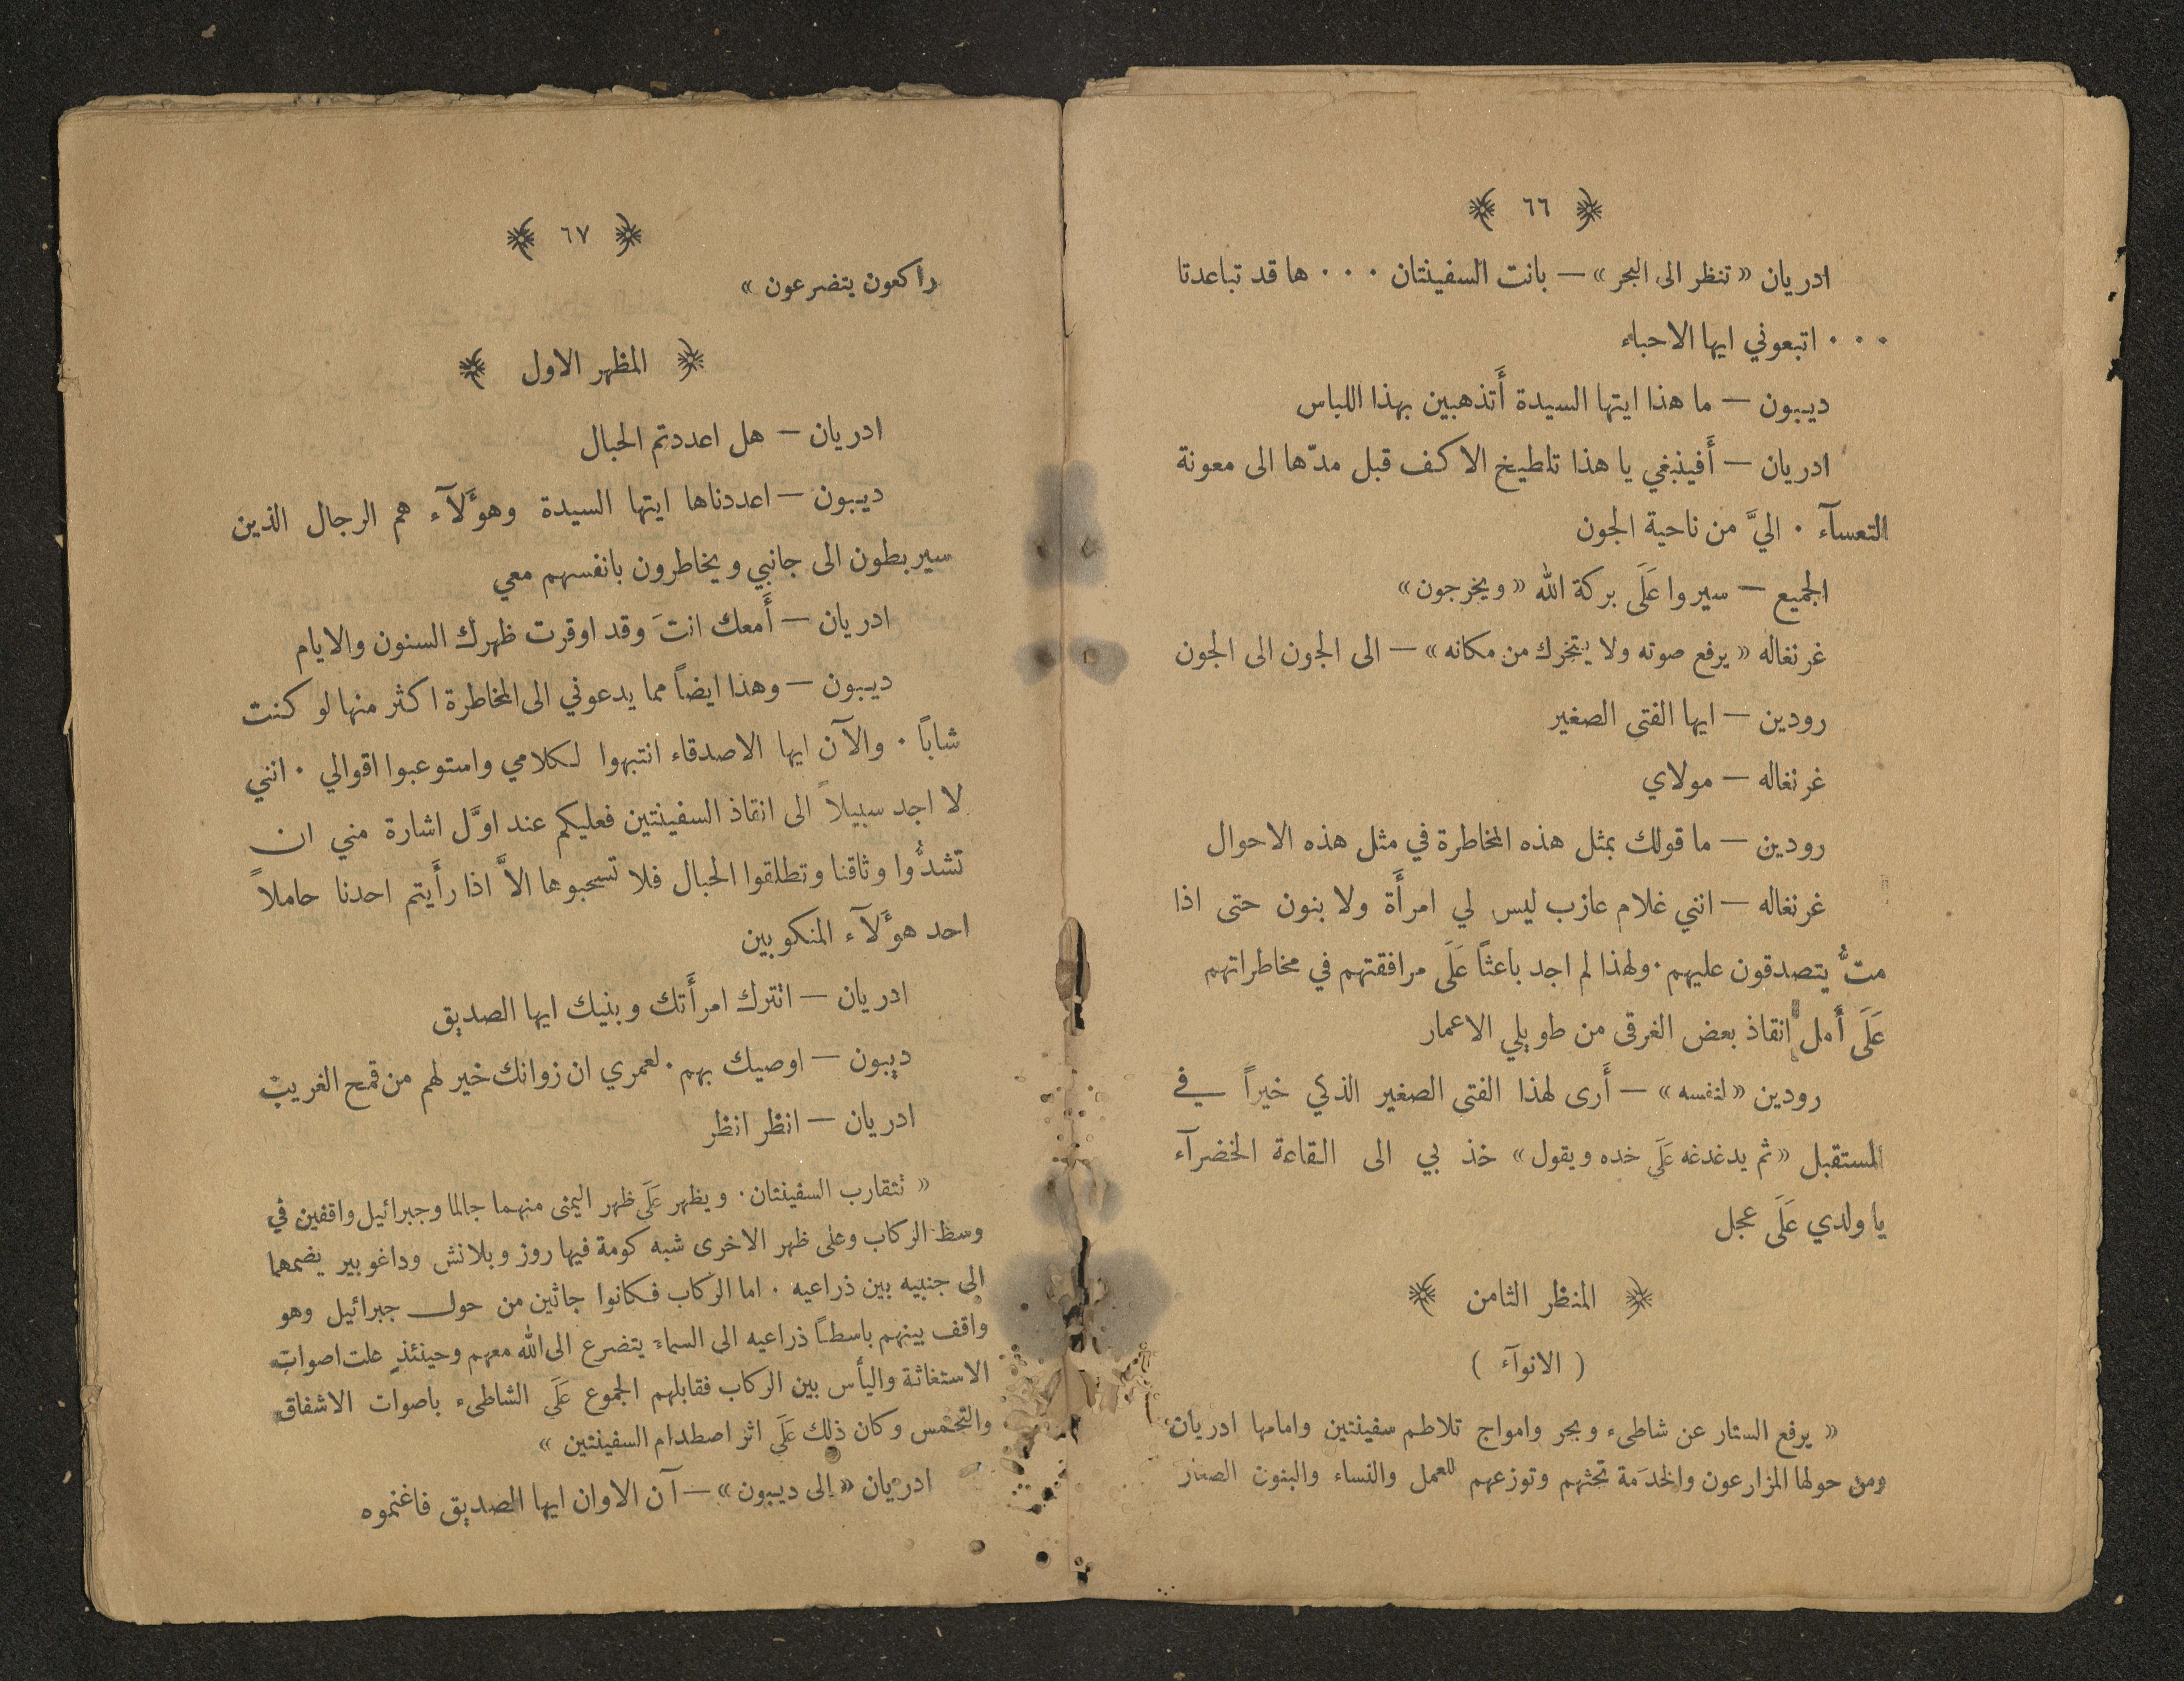 ٦٦
ادريان «تنظر الى البحر» — بانت السفينتان ٠٠٠ ها قد تباعدتا
٠٠٠ اتبعوني ايها الاحباء
ديبون — ما هذا ايتها السيدة أَتذهبين بهذا اللباس
ادريان — أَفينبغي يا هذا تلطيخ الاكف قبل مدّها الى معونة
التعسآء ٠ اليَّ من ناحية الجون
الجميع — سيروا عَلَى بركة الله «ويخرجون»
غرنغاله «يرفع صوته ولا يتحرك من مكانه» — الى الجون الى الجون
رودين — ايها الفتى الصغير
غرنغاله — مولاي
رودين — ما قولك بمثل هذه المخاطرة في مثل هذه الاحوال
غرنغاله — انني غلام عازب ليس لي امرأَة ولا بنون حتى اذا
متُّ يتصدقون عليهم ٠ ولهذا لم اجد باعثاً عَلَى مرافقتهم في مخاطراتهم
عَلَى أَمل انقاذ بعض الغرقى من طويلي الاعمار
رودين «لنفسه» — أَرى لهذا الفتى الصغير الذكي خيراً في
المستقبل «ثم يدغدغه عَلَى خده ويقول» خذ بي الى القاعة الخضرآء
يا ولدي عَلَى عجل
المنظر الثامن
( الانوآء )
« يرفع الستار عن شاطىء وبحر وامواج تلاطم سفينتين وامامها ادريان
ومن حولها المزارعون والخدَمة تحثهم وتوزعهم للعمل والنساء والبنون الصغار
٦٧
راكعون يتضرعون »
المظهر الاول
ادريان — هل اعددتم الحبال
ديبون — اعددناها ايتها السيدة وهؤَلآء هم الرجال الذين
سيربطون الى جانبي ويخاطرون بانفسهم معي
ادريان — أَمعك انتَ وقد اوقرت ظهرك السنون والايام
ديبون — وهذا ايضاً مما يدعوني الى المخاطرة اكثر منها لو كنت
شاباً ٠ والآن ايها الاصدقاء انتبهوا لكلامي واستوعبوا اقوالي ٠ انني
لا اجد سبيلاً الى انقاذ السفينتين فعليكم عند اوَّل اشارة مني ان
تشدُّوا وثاقنا وتطلقوا الحبال فلا تسحبوها الاَّ اذا رأَيتم احدنا حاملاً
احد هؤَلآء المنكوبين
ادريان — اتترك امرأَتك وبنيك ايها الصديق
ديبون — اوصيك بهم ٠ لعمري ان زوانك خير لهم من قمح الغريب
ادريان — انظر انظر
« تتقارب السفينتان ٠ ويظهر عَلَى ظهر اليمنى منهما جالما وجبرائيل واقفين في
وسط الركاب وعلى ظهر الاخرى شبه كومة فيها روز وبلانش وداغوبير يضمهما
الى جنبيه بين ذراعيه ٠ اما الركاب فكانوا جاثين من حول جبرائيل وهو
واقف بينهم باسطاً ذراعيه الى السماء يتضرع الى الله معهم وحينئذٍ علت اصوات
الاستغاثة واليأس بين الركاب فقابلهم الجموع عَلَى الشاطىء باصوات الاشفاق
والتحمس وكان ذلك عَلَى اثر اصطدام السفينتين »
ادريان «الى ديبون» — آن الاوان ايها الصديق فاغنموه